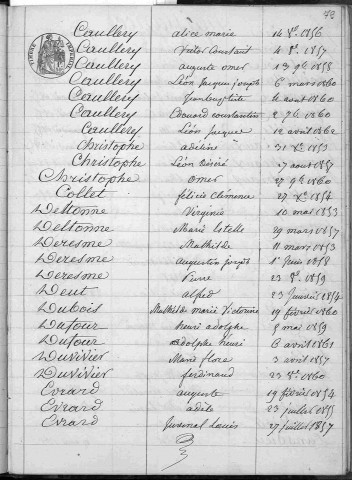 73
Caullery alice marie 14 Xe. 1856
Caullery Victor Constant 4 Xe. 1857
Caullery auguste omer 13 9e 1858
Caullery Léon Jacques joseph 6 mars 1860
Caullery Jean 4 août 1860
Caullery Edouard constantin 2 7e 1860
Caullery Léon Jacques 12 avril 1862
Christophe adeline 31 Xe 1853
Christophe Léon Désiré 27 aout 1857
Christophe omer 27 9e 1860
Collet félicie Clémence 27 Xe 1854
Deltonne Virginie 10 mai 1853
Deltonne Marie Estelle 29 mars 1857
Deresme Mathilde 11 mars 1853
Deresme augustin joseph 1er Juin 1858
Deresme Pierre 23 Xe. 1859
Deut alfred 23 Janvier 1854
Dubois Mathilde marie Victorine 19 février 1860
Dufour henri adolphe 8 mai 1859
Dufour adolphe henri 6 avril 1861
Duvivier Marie flore 3 avril 1857
Duvivier ferdinand 23 Xe. 1860
Evrard auguste 19 février 1854
Evrard adèle 23 juillet 1855
Evrard Juvenal Louis 27 juillet 1857